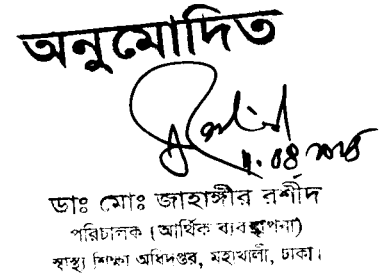 অনুমোদিত
ডাঃ মোঃ জাহাঙ্গীর রশীদ
পরিচালক (আর্থিক ব্যবস্থাপনা)
স্বাস্থ্য শিক্ষা অধিদপ্তর, মহাখালী, ঢাকা।